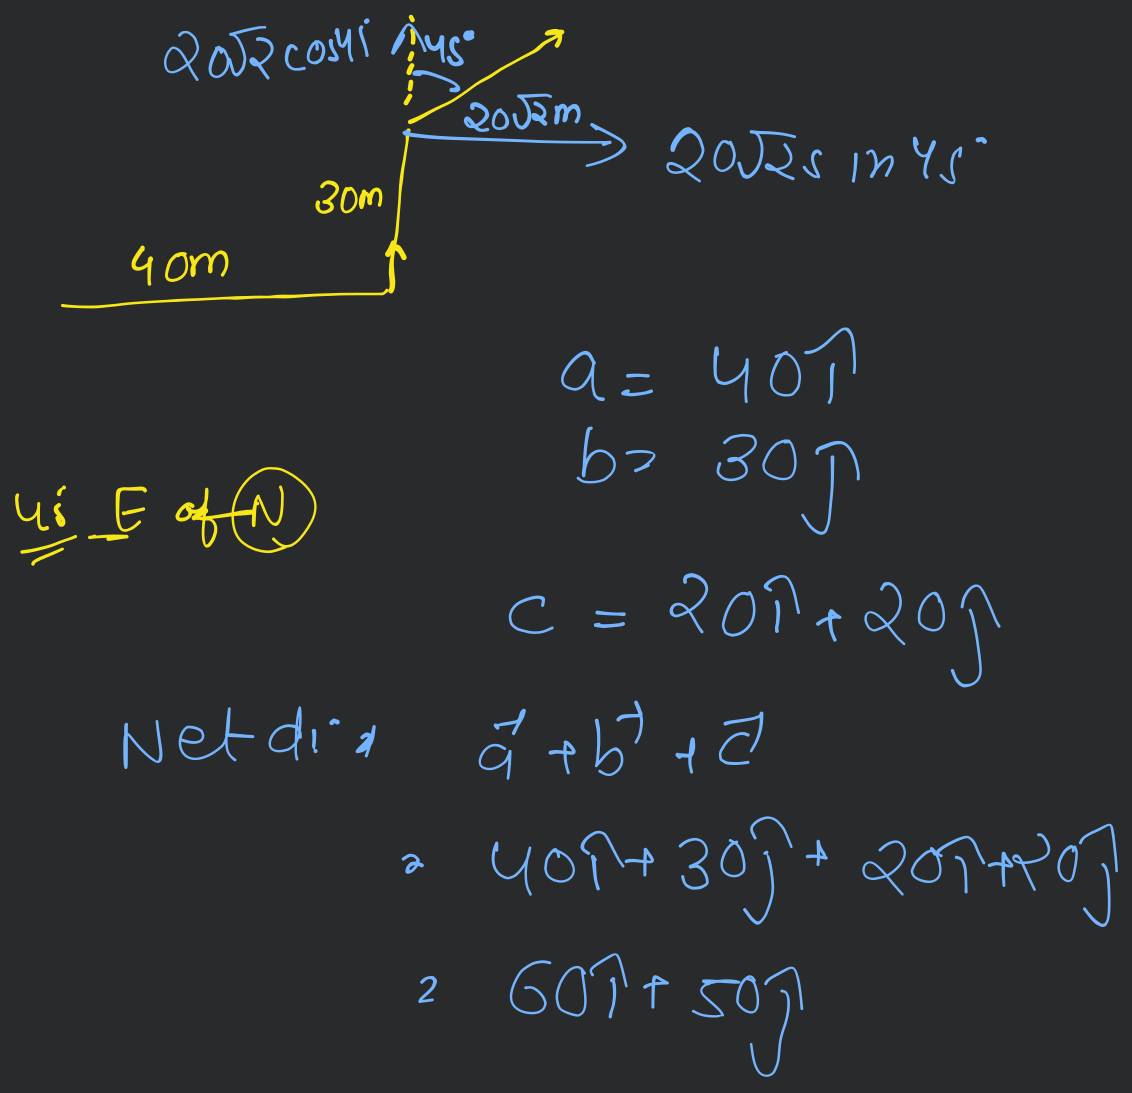 20√2 cos45 45°
20√2m
20√2 sin45°
30m
40m
a = 40î
b = 30ĵ
45 E of N
c = 20î + 20ĵ
Net di = a⃗ + b⃗ + c⃗
= 40î + 30ĵ + 20î + 20ĵ
= 60î + 50ĵ